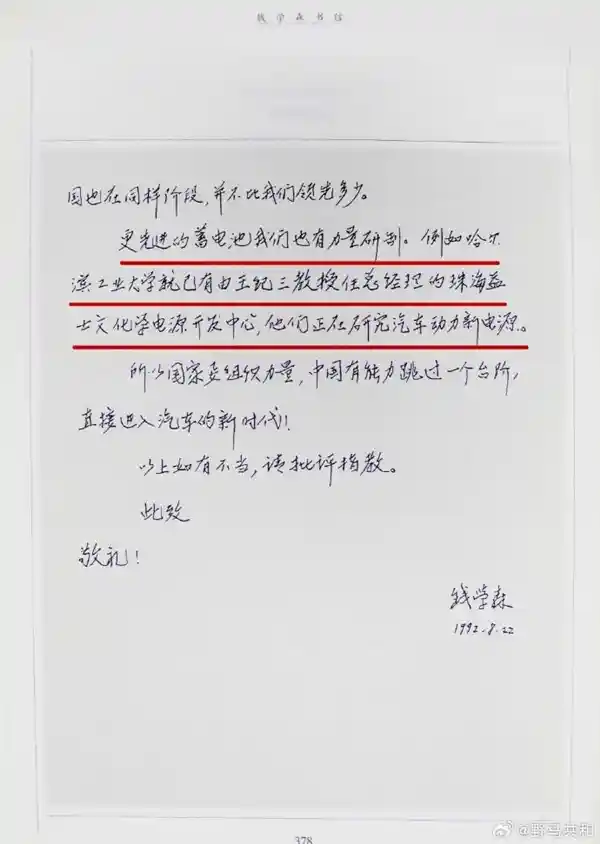 钱学森书信
国也在同样阶段,并不比我们领先多少。
更先进的蓄电池我们也有力量研制。例如哈尔
滨工业大学就已有由王纪三教授任总经理的珠海益
士文化学电源开发中心,他们正在研究汽车动力新电源。
所以国家要组织力量,中国有能力跳过一个台阶,
直接进入汽车的新时代!
以上如有不当,请批评指教。
此致
敬礼!
钱学森
1992.8.22
378
@野马共和